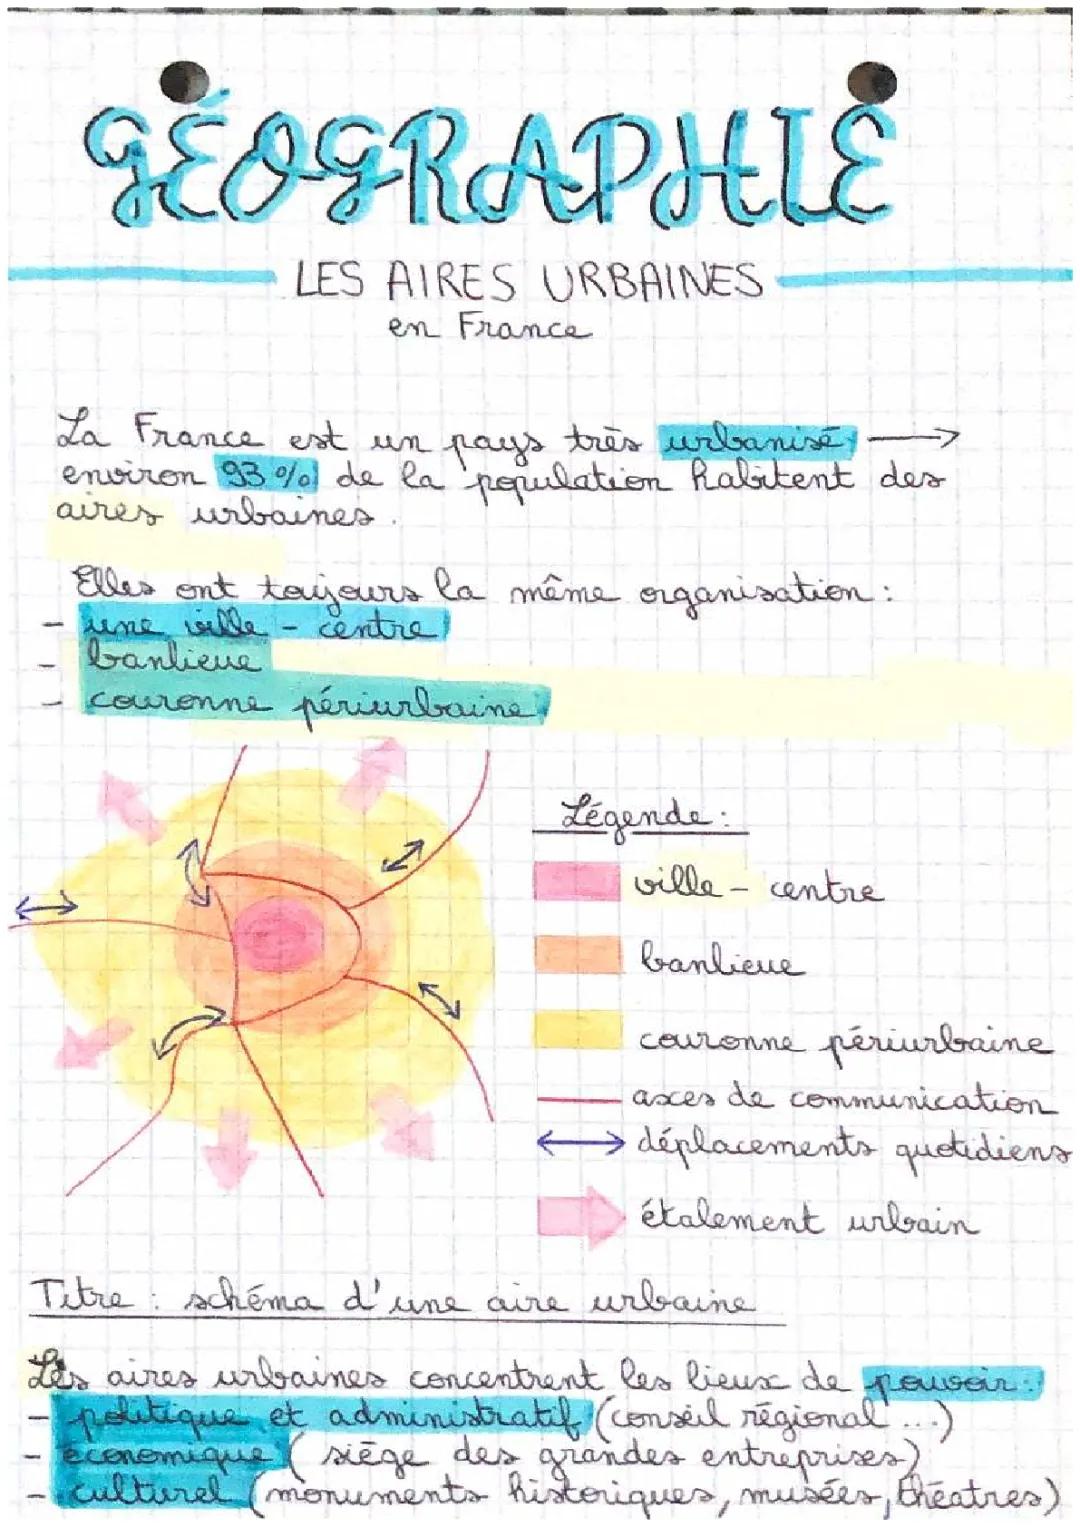 GÉOGRAPHIE
LES AIRES URBAINES
en France
La France est un pays très urbanisé →
environ 93 % de la population habitent des
aires urbaines.
Elles ont toujours la même organisation :
- une ville - centre
- banlieue
- couronne périurbaine
Légende :
ville - centre
banlieue
couronne périurbaine
axes de communication
déplacements quotidiens
étalement urbain
Titre : schéma d'une aire urbaine
Les aires urbaines concentrent les lieux de pouvoir :
- politique et administratif (conseil régional ...)
- économique ( siège des grandes entreprises)
- culturel (monuments historiques, musées, théatres)